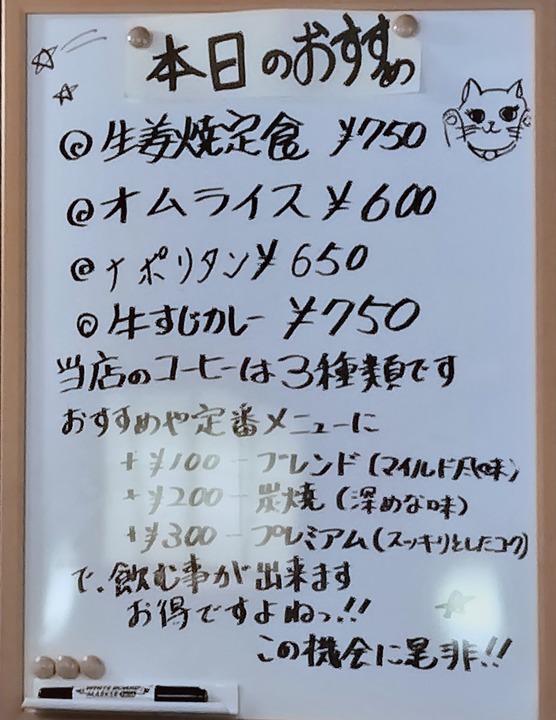 本日のおすすめ
◎生姜焼定食 ¥750
◎オムライス ¥600
◎ナポリタン ¥650
◎牛すじカレー ¥750
当店のコーヒーは3種類です
おすすめや定番メニューに
+¥100-ブレンド(マイルド風味)
+¥200-炭焼(深めな味)
+¥300-プレミアム(スッキリとしたコク)
で、飲む事が出来ます
お得ですよねっ!!
この機会に是非!!
WHITE BOARD
MARKER